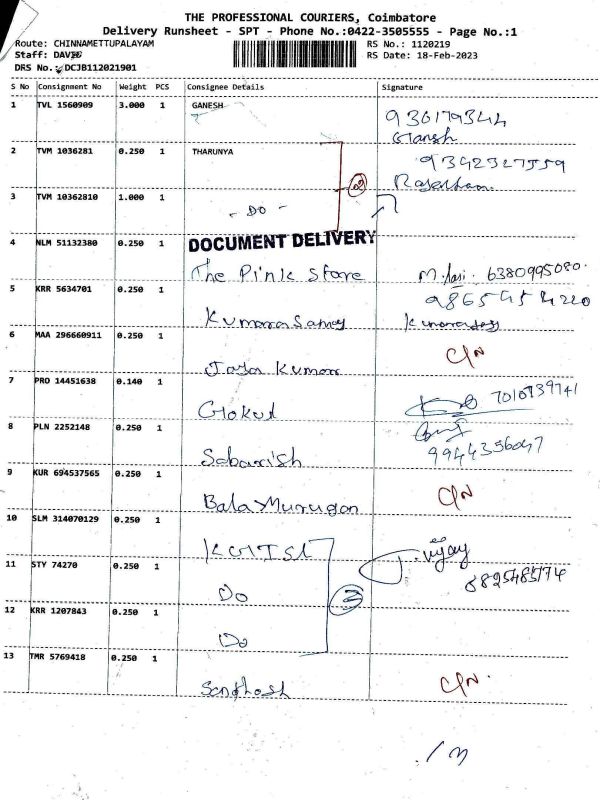 THE PROFESSIONAL COURIERS, Coimbatore
Delivery Runsheet - SPT - Phone No.:0422-3505555 - Page No.:1
Route: CHINNAMETTUPALAYAM RS No.: 1120219
Staff: DAVID RS Date: 18-Feb-2023
DRS No.: DCJB112021901
S No Consignment No Weight PCS Consignee Details Signature
1 TVL 1560909 3.000 1 GANESH
Ganesh
2 TVM 1036281 0.250 1 THARUNYA 9342327559
3 TVM 10362810 1.000 1
- DO -
DOCUMENT DELIVERY
4 NLM 51132380 0.250 1
The Pink Store 6380995080.
5 KRR 5634701 0.250 1
Kumarasamy Kumarasamy
6 MAA 296660911 0.250 1 C/N
Jaya Kumar
7 PRO 14451638 0.140 1 7010839741
Gokul
8 PLN 2252148 0.250 1 9944356047
Sabarish
9 KUR 694537565 0.250 1 C/N
Bala Murugan
10 SLM 314070129 0.250 1 KGISL
vijay
11 STY 74270 0.250 1 8825485774
Do
3
12 KRR 1207843 0.250 1
Do
13 TMR 5769418 0.250 1 C/N.
Santhosh